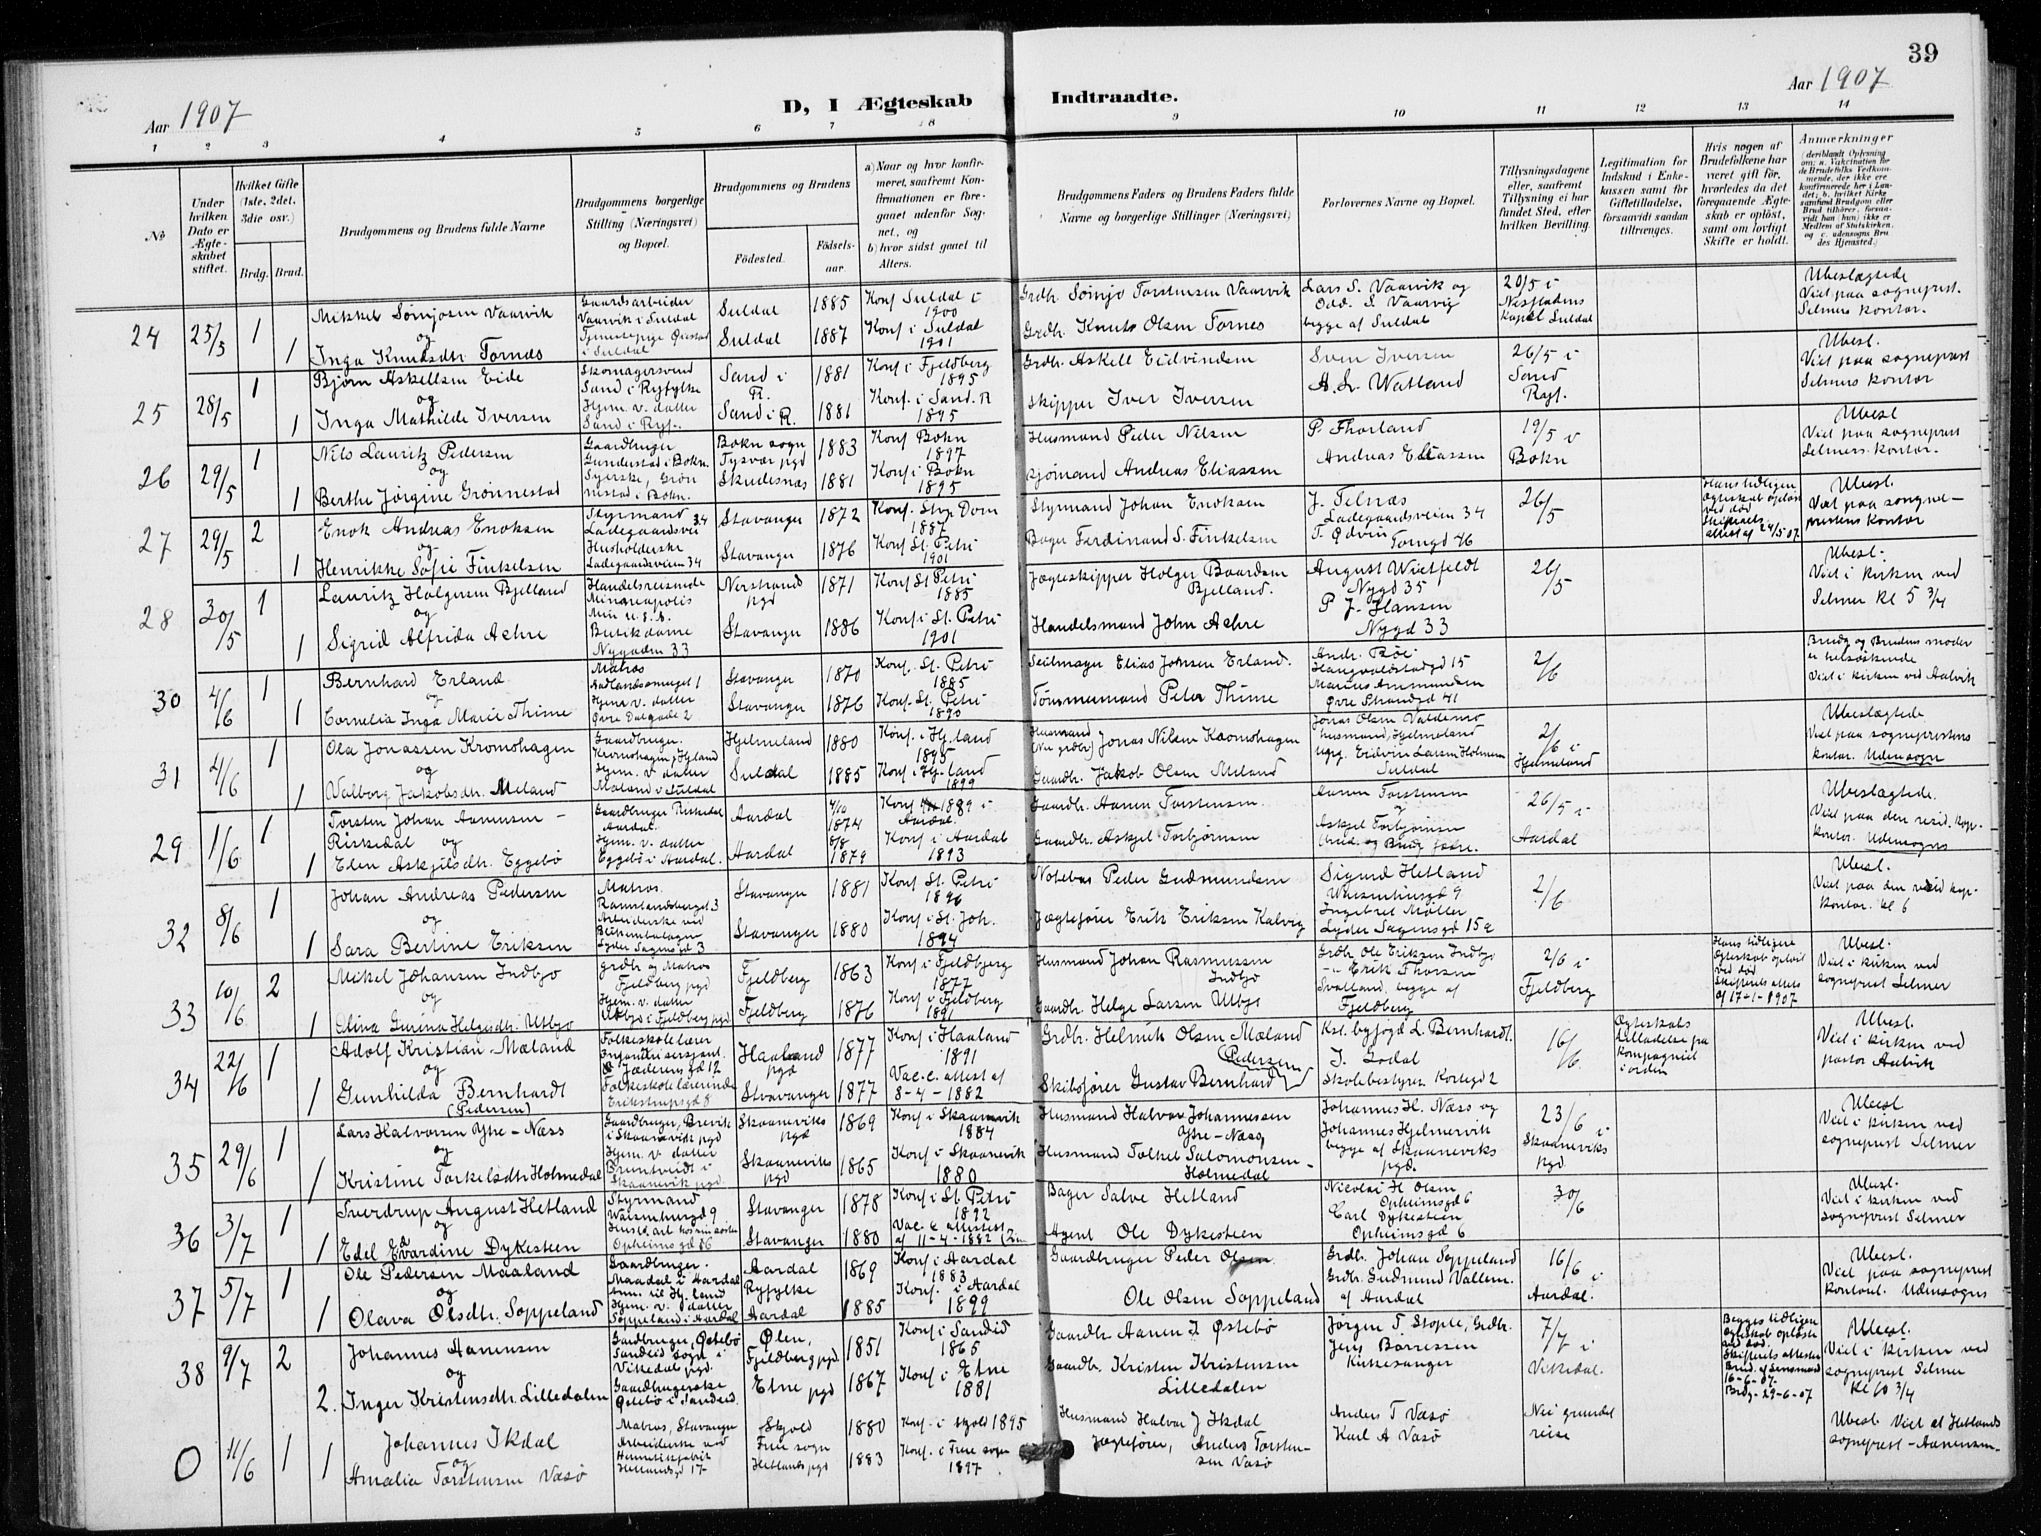 39
Aar 1907
D, I Ægteskab Indtraadte.
Aar 1907
1 2 3 4 5 6 7 8 9 10 11 12 13 14
No
Under hvilken Dato er Ægteskabet stiftet.
Hvilket Gifte (1ste, 2det, 3die osv.)
Brdg. Brud.
Brudgommens og Brudens fulde Navne
Brudgommens borgerlige Stilling (Næringsvei) og Bopæl.
Brudgommens og Brudens
Födested. Födselsaar
a) Naar og hvor konfirmeret, saafremt Konfirmationen er foregaaet udenfor Sognet, og
b) hvor sidst gaaet til Alters.
Brudgommens Faders og Brudens Faders fulde Navne og borgerlige Stillinger (Næringsvei)
Forlovernes Navne og Bopæl.
Tillysningsdagene eller, saafremt Tillysning ei har fundet Sted, efter hvilken Bevilling.
Legitimation for Indskud i Enkekassen samt for Giftetilladelse, forsaavidt saadan tiltrænges.
Hvis nogen af Brudefolkene har været gift för, hvorledes da det foregaaende Ægteskab er oplöst, samt om lovligt Skifte er holdt.
Anmærkninger (deriblandt Oplysning om: a. Vakcination for de Brudefolks Vedkommende, der ikke ere konfirmerede her i Landet; b. hvilket Kirkesamfund Brudgom eller Brud tilhörer, forsaavidt han (hun) ikke er Medlem af Statskirken. og c. udensogns Brudes Hjemsted.)
24 25/5 1 Mikkel Sømjosen Vaarvik Gaardsarbeider Vaarvik i Suldal Suldal 1885 Konf Suldal i 1900 Grdbr. Sömjo Torstensen Vaarvik Lars S. Vaarvik og Odd. S Vaarvig begge af Suldal 20/5 i Nesfladens Kapel Suldal Ubeslægtede Viet paa sogneprest. Selmers kontor.
og
1 Inga Knudsdtr Tornes i Suldal Suldal 1887 Konf i Suldal 1901 Grdbr. Knut Olsen Tornes
25 28/5 1 Bjørn Askellsen Eide Skomagersvend Sand i Ryfylke Sand i R. 1881 Konf i Fjeldberg 1895 Grdbr. Askell Eidvindsen Sven Iversen 26/5 i Sand Ryf. Ubesl. Viet paa sogneprest Selmers kontor
og
1 Inga Mathilde Iversen Hjem. v. datter Sand i Ryf. Sand i R. 1881 Konf. i Sand. R 1895 Skipper Iver Iversen Watland
26 29/5 1 Nils Lauritz Pedersen Gaardbruger Gunderstad i Bokn. Bokn sogn Tysvær pgd 1883 Konf Bokn 1897 Husmand Peder Nilsen P. Thorland 19/5 i Bokn Ubesl Viet paa sogneprest Selmers kontor.
og
1 Berthe Jørgine Grønnestad Syerske, Grønnestad i Bokn. Skudesnæs 1881 Konf i Bokn 1895 Sjömand Andreas Eliassen Andreas Eliassen
27 29/5 2 Enok Andreas Enoksen Styrmand Ladegaardsvei 34 Stavanger 1872 Konf. Stvg Dom 1887 Styrmand Johan Enoksen J. Telnæs Ladegaardsveien 34 26/5 Hans tidligere Ægteskab opløst ved död Skifterets attest af 24/5 07. Ubesl. Viet paa sogneprestens kontor
og
1 Henrikke Sofie Finkelsen Husholderske Ladegaardsveien 34 Stavanger 1876 Konf St. Petri 1901 Bager Ferdinand S. Finkelsen T. Torngd 46
28 30/5 1 Lauritz Holgersen Bjelland Handelsreisende Mineapolis Min U.S.A. Nerstrand pgd 1871 Konf St Petri 1885 Jægteskipper Holger Baardsen Bjelland. August Wietfeldt Nygd 35 26/5 Ubesl. Viet i kirken ved Selmer Kl 5 3/4
og
1 Sigrid Alfrida Achre Butikdame Nygaden 33 Stavanger 1886 Konf i St. Petri 1901 Handelsmand John Achre P J. Hansen Nygd 33
30 4/6 1 Bernhard Erland Matros 1 Stavanger 1870 Konf. St. Petri 1885 Seilmager Elias Johnsen Erland. Andr. Böe 15 2/6 Brudg og Brudens moder er helsøskende Viet i kirken ved Aalvik
og
1 Cornelia Inga Marie Thime Hjem v. datter Øvre Dalgade 2 Stavanger 1876 Konf. St. Petri 1890 Tömmermand Peter Thime Marius Ammundsen Øvre Strandgd 41
31 4/6 1 Ola Jonassen Kromshagen Gaardbruger. Hjelmeland 1880 Konf. i Hj.land 1895 Husmand (Nu grdbr) Jonas Nilsen Kromshagen Jonas Olsen husmand, Hjelmeland 2/6 i Hjelmeland Ubeslægtede Viet paa sogneprestens kontor. Udensogn
og
1 Valborg Jakobsdtr. Meland Hjem. v. datter Mæland i Suldal Suldal 1885 Konf i Hj.land 1899 Gaardbr. Jakob Olsen Meland Eidvin Larsen Suldal
29 1/6 1 Torsten Johan Aanensen - Riskedal og Gaardbruger Riskedal Aardal. Aardal 4/10 1874 Konf 1889 i Aardal. Gaardbr. Aanen Torstensen. Aanen Torstensen 26/5 i Aardal Ubeslægtede. Viet paa den resid. kap. kontor. Udensogns
1 Elen Askjelsdtr. Eggebö Hjem. v. datter Eggebö i Aardal. Aardal 8/8 1879 Konf i Aardal 1893 Gaardbr. Askjel Torbjörnsen Askjel Torbjörnsen Brud. og Brudg fædre.
32 8/6 1 Johan Andreas Pedersen Matros. 3 Stavanger 1881 Konf St. Petri 1896 Notebas Peder Gudmundsen Sigurd Hetland Waisenhusgd 9 2/6 Ubesl. Viet paa den resid kap. kontor. kl 6
og
1 Sara Bertine Eriksen Arbeiderske ved Lyder Sagensgd 3 Stavanger 1880 Konf i St. Joh. 1894 Jægtefører Erik Eriksen Kalvig Ingebret Møller Lyder Sagensgd 15a
33 10/6 2 Mikel Johansen Indbjo grdbr og Matros Fjeldberg pgd Fjeldberg 1863 Konf i Fjeldbjerg 1877 Husmand Johan Rasmussen Indbjo Grdbr Ole Eriksen Indbjo 2/6 i Fjeldberg Hans tidligere Ægteskab opløst ved död Skifterets attest af 17-1-1907 Ubesl. Viet i kirken ved sogneprest Selmer
og
1 Olina Gurina Helgesdtr. Utbjo Hjem. v. datter Utbjo i Fjeldberg pgd. Fjeldberg 1876 Konf i Fjeldberg 1891 Gaardbr. Helge Larsen Utbjo Erik Thorsen begge af Fjeldberg
34 22/6 1 Adolf Kristian Mæland Folkeskolelærer Jæderensgd 12 Haaland pgd 1877 Konf i Haaland 1891 Grdbr. Helmik Olsen Mæland Kst. byfogd L. Bernhardt. 16/6 Ægteskabs tilladelse fra Kompagniet i orden Ubesl. Viet i kirken ved pastor Aalvik
og
1 Gunhilda Bernhardt (Pedersen) Folkeskolelærerinde Erikstrupsgd 8 Stavanger 1877 Vac. c. attest af 8-4-1882 Skibsfører Gustav Bernhard Pedersen J. Godal Skolebestyrer Kortegd 2
35 29/6 1 Lars Halvorsen Ytre-Næss Gaardbruger, Brevik i Skaanevik pgd Skaaneviks pgd 1869 Konf i Skaanevik 1884 Husmand Halvor Johannessen Ytre-Næss, Johannes H. Næss og 23/6 i Skaaneviks pgd Ubesl Viet i kirken ved sogneprest Selmer
og
1 Kristine Torkelsdtr Holmedal Hjem. v. datter Skaanevik pgd. Skaaneviks pgd 1865 Konf i Skaanevik 1880 Husmand Tolkel Salomonsen - Holmedal Johannes Hjelmervik begge af Skaaneviks pgd.
36 3/7 1 Sverdrup August Hetland Styrmand Waisenhusgd 9 Stavanger 1878 Konf i St. Petri 1892 Bager Salve Hetland Nicolai H Olsen Opheimsgd 6 30/6 Ubesl. Viet i kirken ved sogneprest Selmer
og
1 Edel Edvardine Dykesteen Opheimsgd 6 Stavanger 1880 Vac. c. attest af 11-4-1882 Agent Ole Dykesteen Carl Dykesteen Opheimsgd 6
37 5/7 1 Ole Pedersen Maaland Gaardbruger. Aardal Ryfylke 1869 Konf i Aardal 1883 Gaardbruger Peder Olsen Grdbr. Johan Soppeland 16/6 i Aardal. Ubesl. Viet paa sogneprest kontoret. Udensogns
og
1 Olava Olsdtr. Soppeland Hjem. v. datter Soppeland i Aardal Aardal 1885 Konf. i Aardal 1899 Ole Olsen Soppeland Grdbr. Gudmund Vallem. af Aardal
38 9/7 2 Johannes Aanensen Gaardbruger, Östebö Sandeid sogn i Vikedal pgd. Ølen, Fjeldberg pgd 1851 Konf i Sandeid 1865 Gaardbr. Aanen J. Østebö Jörgen T Stople, Grdbr. 7/7 i Vikedal. Begges tidligere Ægteskab opløste ved død Skifterets attester Brud. af Lensmand 16-6-07. Brdg-29-6-07 Ubesl. Viet i kirken ved sogneprest Selmer Kl 10 3/4
og
2. Inger Kristensdtr. Lilledalen Gaardbrugerske Östebö i Sandeid. Etne pgd 1867 Konf i Etne 1881 Gaardbr. Kristen Kristensen Lilledalen Jens Börresen Kirkesanger
0 11/6 1 Johannes Ikdal Matros, Stavanger Skjold 1880 Konf. i Skjold 1895 Husmand Halvor J Ikdal Anders T Vasö Nei grundet reise Ubesl. Viet af Hetlands sogneprest-Aanensen.
og
1 Amalia Torstensen Vasö Arbeiderske ved Hermetikfabrik Hetlandsgd 17 Frue sogn Hetlands pgd 1883 Konf. i Frue sogn 1897 Jægtefører, Anders Torstensen Vasö Karl A Vasö